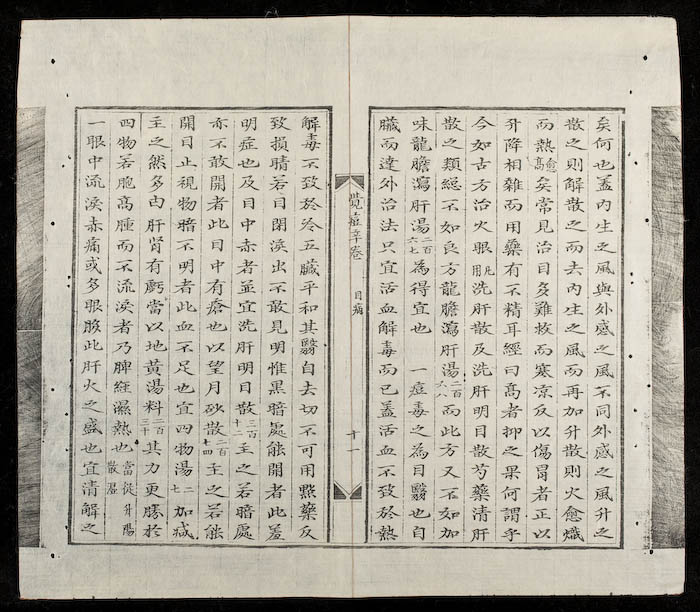 矣何也蓋內生之風與外感之風不同外感之風升之
散之則解散之而去內生之風而再加升散則火愈熾
而熱愈高矣常見治目多難救而寒凉反以傷胃者正以
升降相雜而用藥有不精耳經曰高者抑之果何謂乎
今如古方治火眼凡用洗肝散及洗肝明目散芍藥清肝
散之類總不如良方龍膽瀉肝湯二百六八而此方又不如加
味龍膽瀉肝湯二百六七為得宜也 一痘毒之為目翳也自
臟而達外治法只宜活血解毒而已蓋活血不致於熱
覽痘辛卷 目病 十一
解毒不致於冷五臟平和其翳自去切不可用㸃藥反
致損睛若目閉淚出不敢見明惟黑暗處能開者此羞
明症也及目中赤者並宜洗肝明目散三百十二主之若暗處
亦不敢開者此目中有瘡也以望月砂散二百七四主之若能
開目止視物暗不明者此血不足也宜四物湯二七加減
主之然多由肝腎有虧當以地黃湯料三十其力更勝於
四物若胞高腫而不流淚者乃脾經濕熱也當從升陽散
一眼中流淚赤痛或多眼脧此肝火之盛也宜清解之